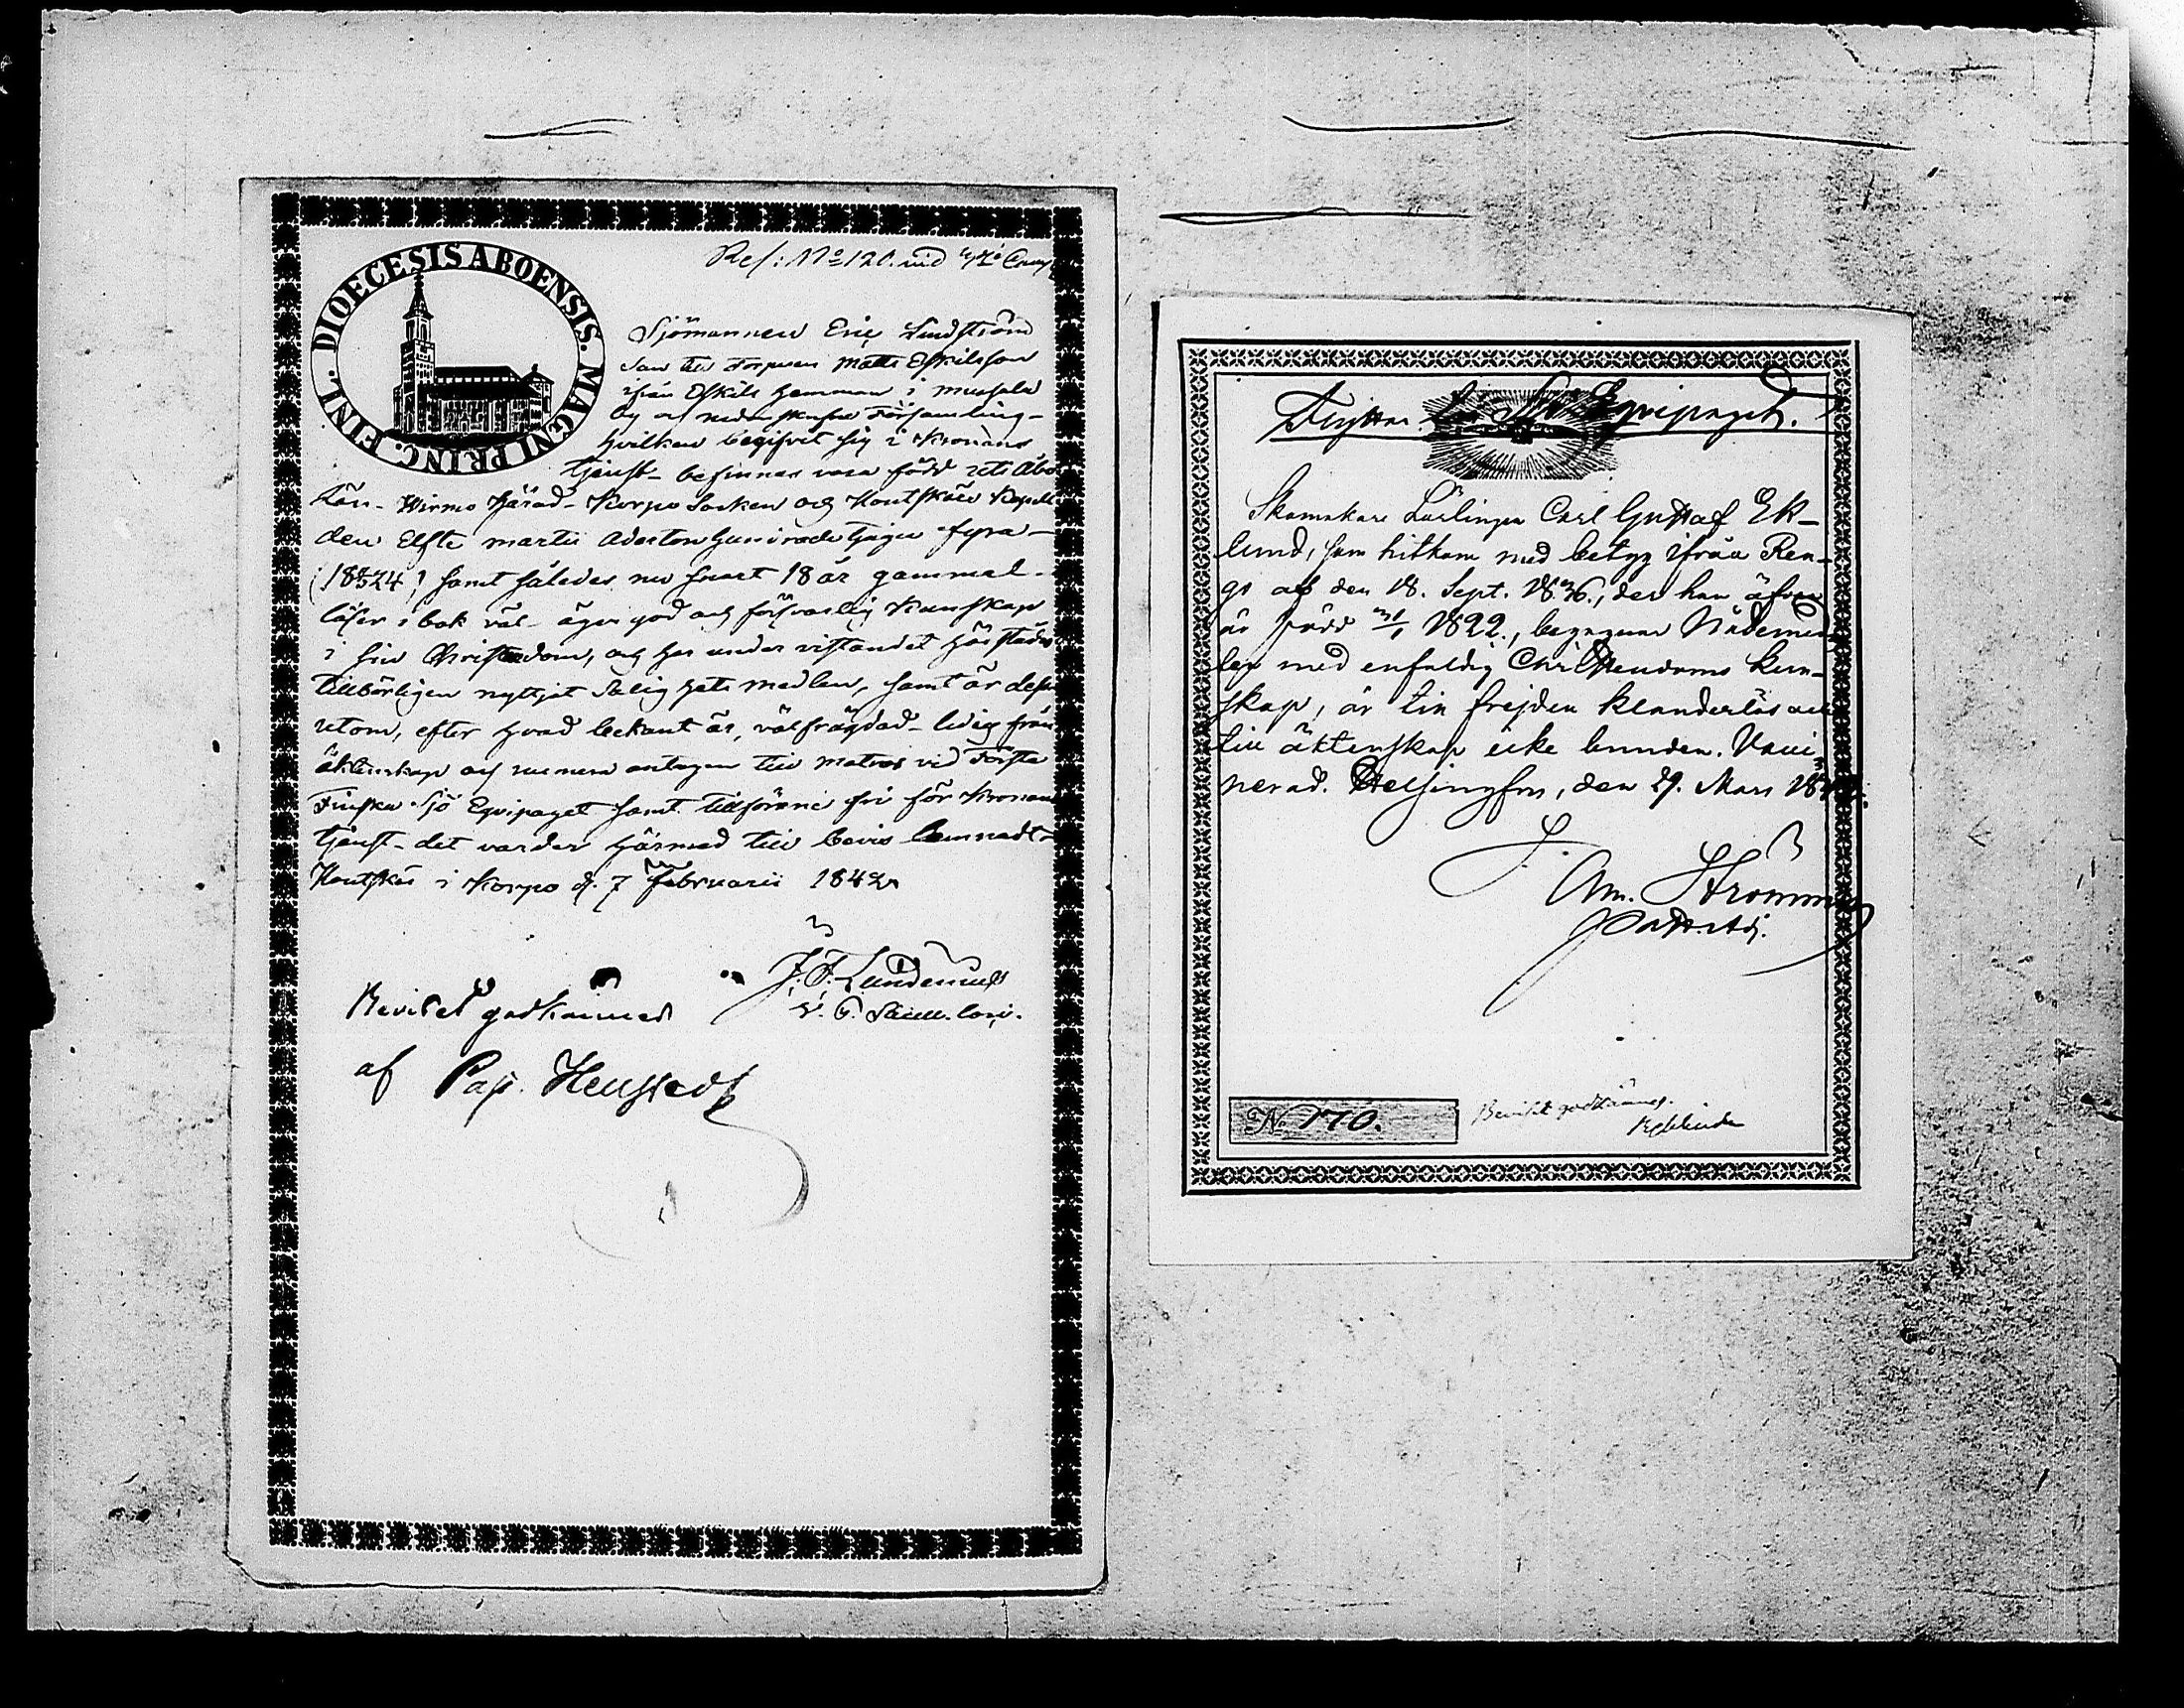 DIOECESIS ABOENSIS. MAGNI PRINC. FINL.
Ref: No 120. vid
Sjömannen Eric Lindström
Son till Torparen Matts Eskilsson
ifrån Eskils hemman i
och af nedanskrefne Församling-
hvilken begifvit sig i Kronans
tjenst- befinnes vara född uti Åbo
Län- Wirmo Härad- Korpo Socken och Houtskär Kapell
den Elfte martii Adertonhundrade tjugu fyra-
(1824) samt således nu snart 18 år gammal-
läser i bok väl- äger god och försvarlig Kunskap
i sin Christendom, och har under vistandet härstädes
tillbörligen nyttjat Salighets medlen, samt är dess
utom, efter hvad bekant är, välfrägdad- ledig från
äktenskap och numera antagen till matros vid Första
Finska Sjö Equipaget samt tillförene fri för Kronans
tjenst- det varder härmed till bevis lemnadt-
Houtskär i Korpo d. 7 Februarii 1842
J. F. Lundenius
Beviset godkännes
af Past.
Sjö Equipaget.
Skomakare Lärlingen Carl Gustaf Ek-
lund, som hitkom med betyg ifrån Ren-
go af den 18. Sept. 1836., der han äfven
är född 31/1 1822., begagnar Nådemed-
len med enfaldig Christendoms kun-
skap, är till frejden klanderlös och
till äktenskap icke bunden. Vacci-
nerad. Helsingfors, den 29. Mars
Am. Stromm
No 170.
Beviset godkännes.